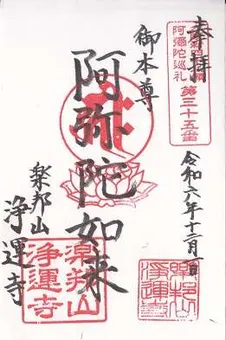 奉拝
阿彌陀巡礼
第三十五番
令和六年十二月一日
御本尊
阿弥陀如来
楽邦山
浄運寺
楽邦山
浄運寺